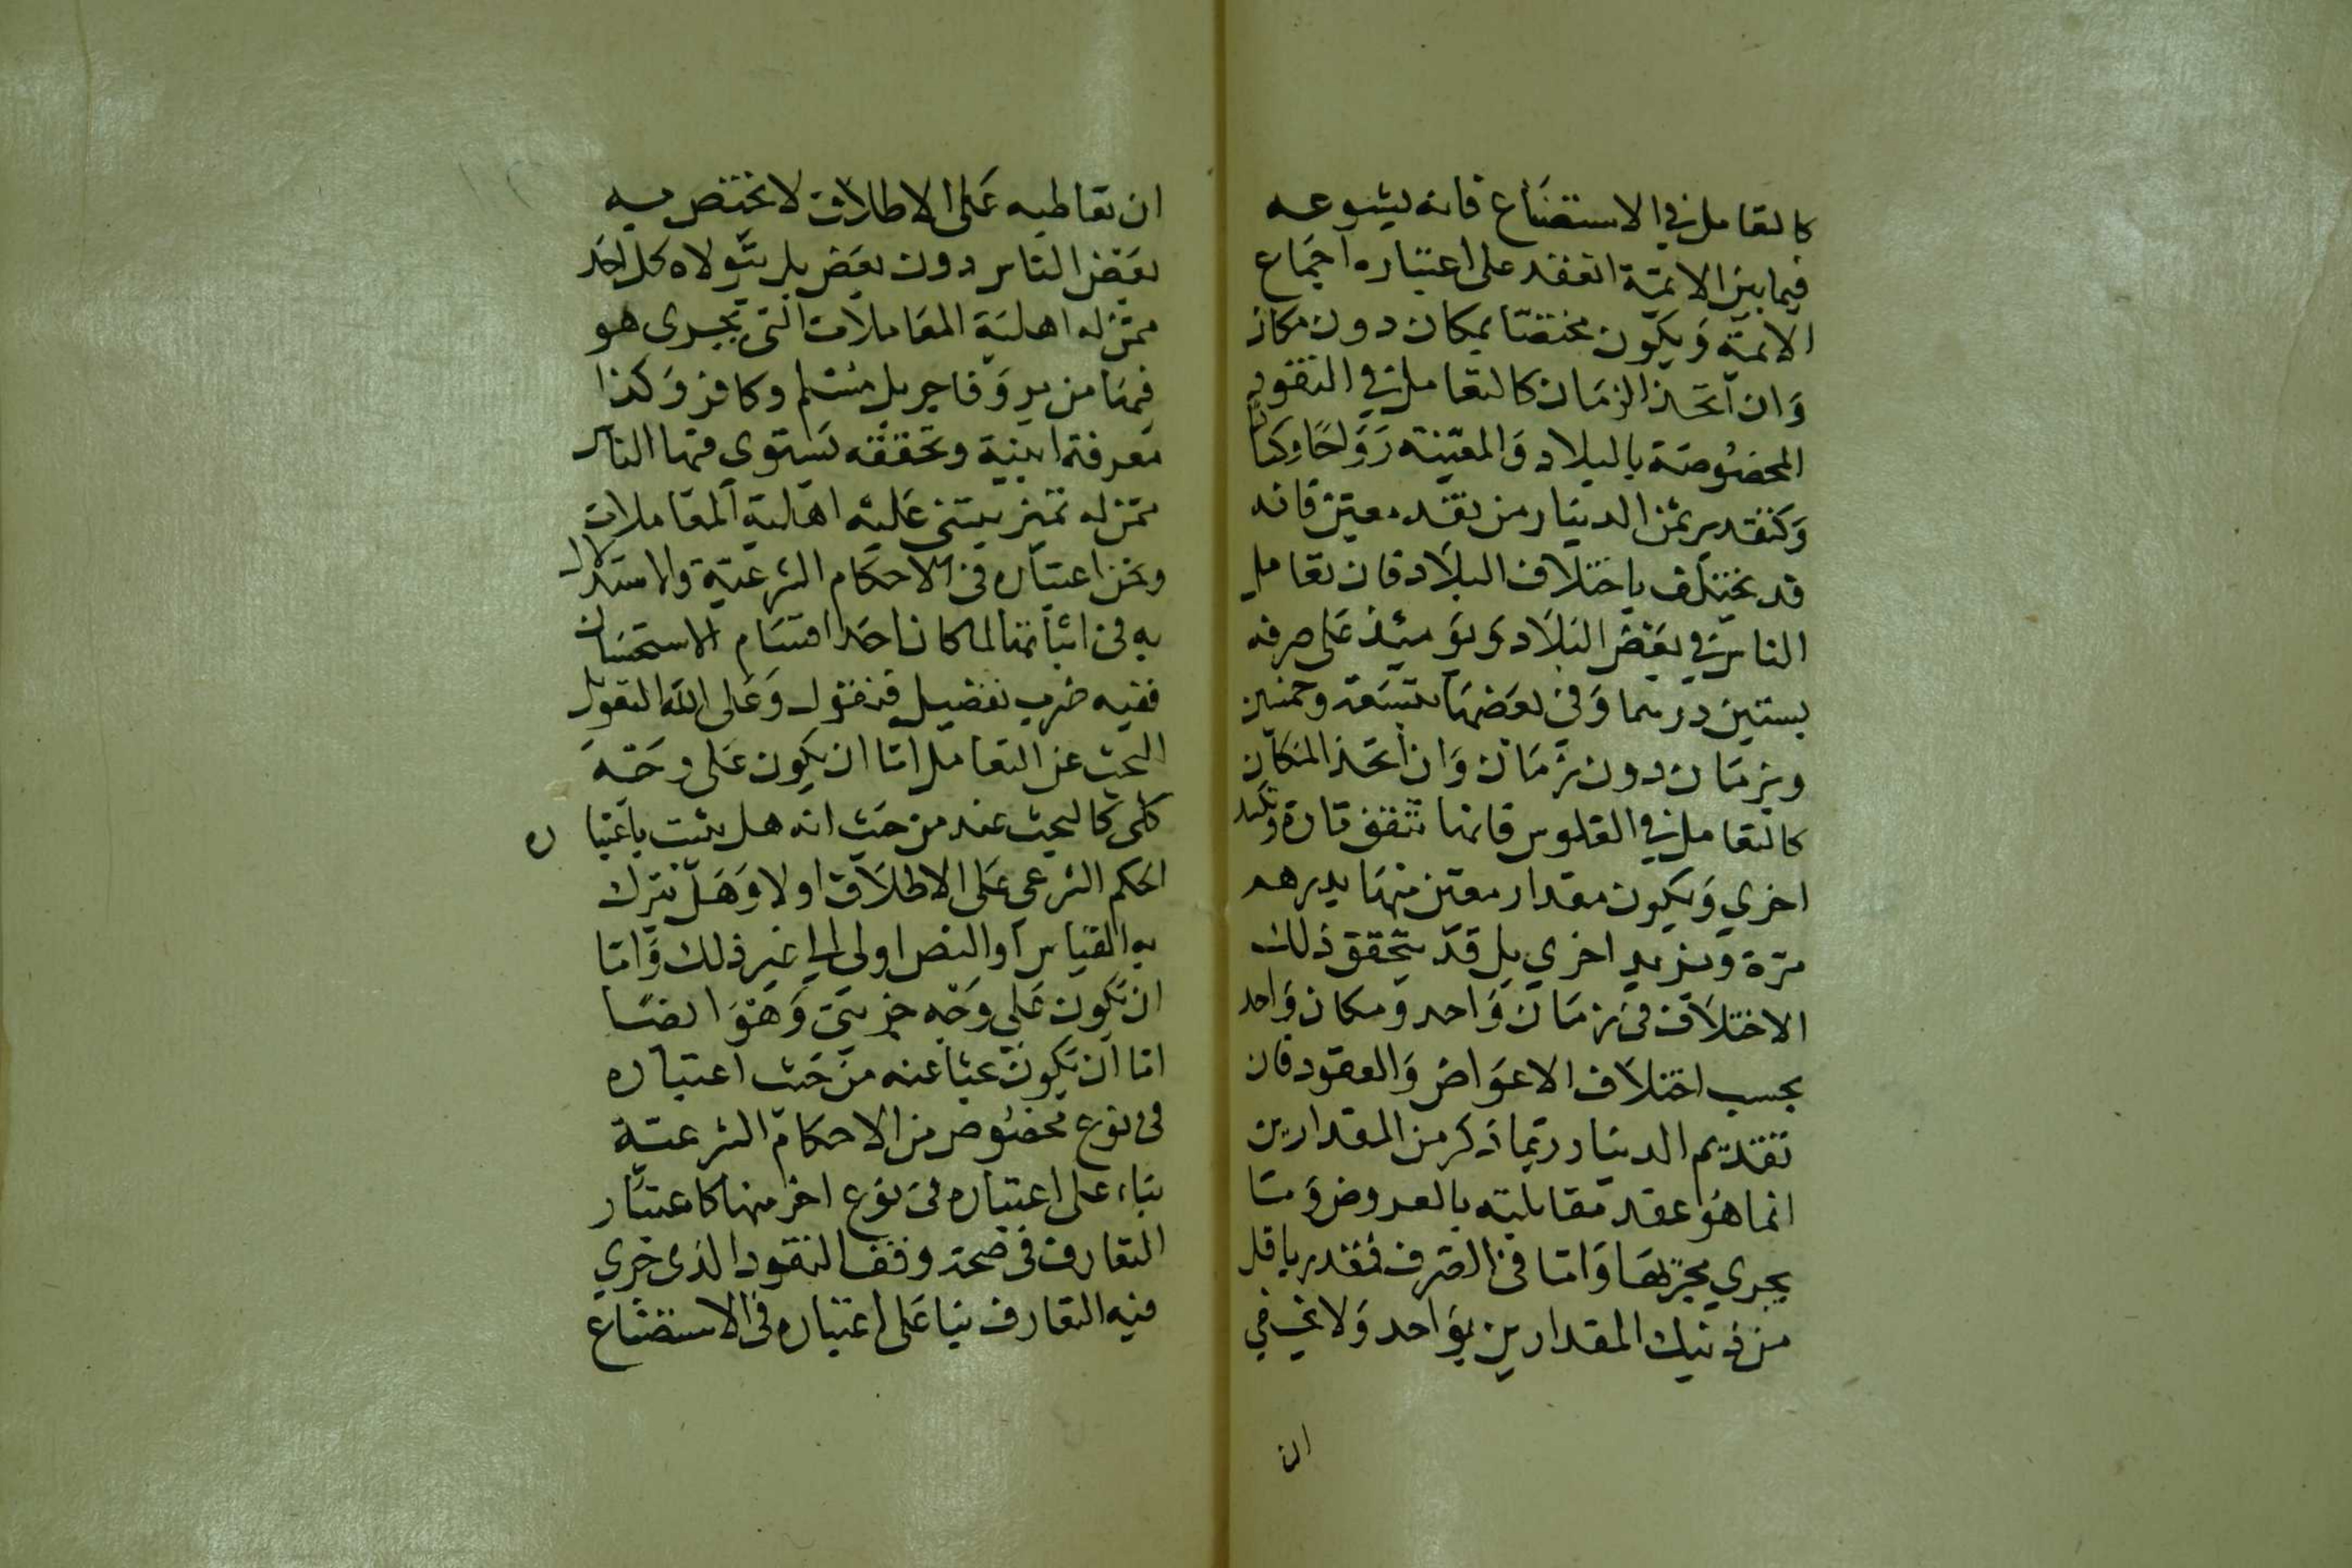 كالتعامل في الاستصناع فانه لشيوعه
فيما بين الائمة انعقد على اعتباره اجماع
الائمة وَيكون مختصا بمكان دون مكان
وَان اتحد الزمان كالتعامل في النقود
المخصوصة بالبلاد وَالمعينة رَوَاجًا وكسادًا
وَكتقدير ثمن الدينار من نقد معين فانه
قد يختلف باختلاف البلاد فان تعامل
الناس في بعض البلاد يومئذ على صرفه
بستين درهما وَفي بعضها بتسعة وخمسين
وبزمان دون زمان وَان اتحد المكان
كالتعامل في الفلوس فانها تنفق تارة وتكسد
اخري وَيكون مقدار معين منها بدرهم
مرة وَيزيد اخري بل قد يتحقق ذلك
الاختلاف في زمان وَاحد وَمكان وَاحد
بحسب اختلاف الاعوَاض وَالعقود فان
تقديم الدينار ربما ذكر من المقدارين
انما هو عقد مقابلته بالعروض وَما
يجري مجريها وَاما في الصرف فقدر باقل
من ذينك المقدارين بوَاحد وَلا يخفي
ان
ان تعاطيه على الاطلاق لا يختص به
بعض الناس دون بعض بل يتولاه كل احد
ممن له اهلية المعاملات التي يجرى هو
فيها من بر وَفاجر بل مسلم وكافر وَكذا
معرفة ابنية وتحققه يستوي فيها الناس
ممن له تمييز يبتنى عليه اهلية المعاملات
ونحن اعتباره في الاحكام الشرعية والاستدلال
به في اثباتها لما كان احد اقسام الاستحسان
ففيه ضرب تفصيل فنقول وَعلى الله التعويل
البحث عن التعامل اما ان يكون على وجه
كلي كالبحث عنه من حيث انه هل يثبت باعتباره
الحكم الشرعي على الاطلاق اولا وَهل يترك
به القياس او النص اولى الى غير ذلك وَاما
ان يكون على وَجه جزيي وَهو ايضا
اما ان يكون بحثا عنه من حيث اعتباره
في نوع مخصوص من الاحكام الشرعية
بناء على اعتباره في نوع اخر منها كاعتبار
التعارف في صحة وقف النقود الذى جري
فيه التعارف بنا على اعتباره في الاستصناع